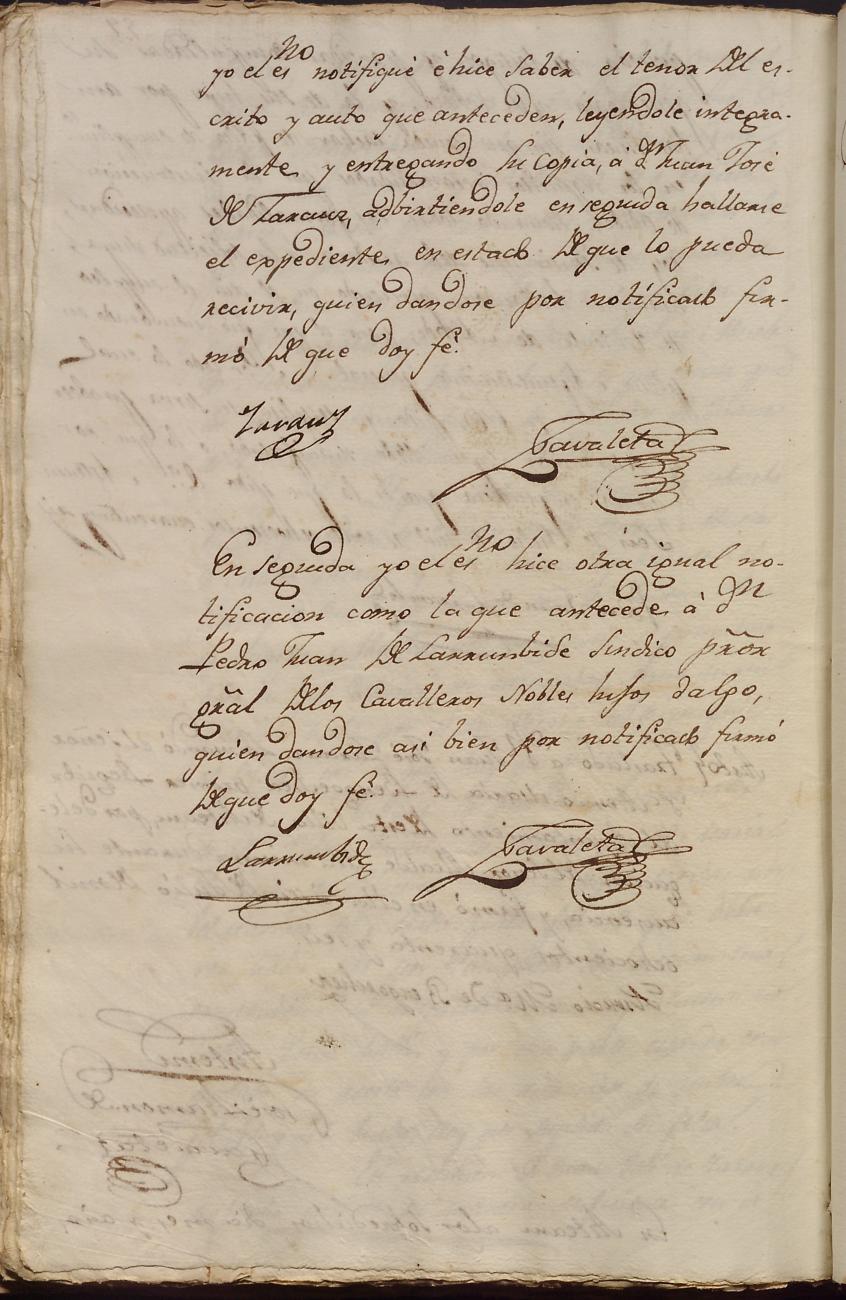 yo el es.no notifiqué é hice saber el tenor del es-
crito y auto que anteceden, leyendole integra-
mente y entregando su copia, á dn Juan José
de Tarauz, adbirtiendole en seguida hallarse
el expediente en estado de que lo pueda
recivir, quien dandose por notificado fir-
mó de que doy fé.
Tarauz
Zavaleta
En seguida yo el es.no hice otra igual no-
tificacion como la que antecede á dn
Pedro Juan de Larrumbide Sindico prõr
grãl de los Cavalleros Nobles hijos dalgo,
quien dandose asi bien por notificado firmó
de que doy fé.
Larrumbide
Zavaleta